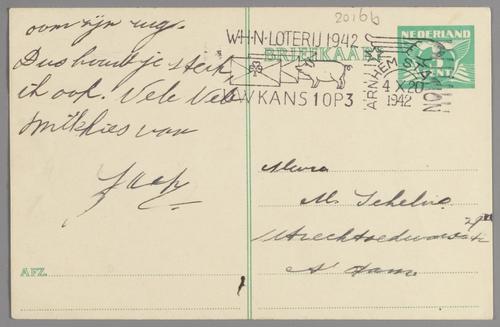 20166
om zijn rug.
Dus houd je sterk
ik ook. Vele Vele
smilkhies van
Jaap
AFZ.
W.H.N. LOTERIJ 1942
UW KANS 1 OP 3
BRIEFKAART
NEDERLAND
5 CENT
ARNHEM STATION
4 X 20
1942
Mevr
M. Schelvis
Utrechtschedwarsstr
A'dam